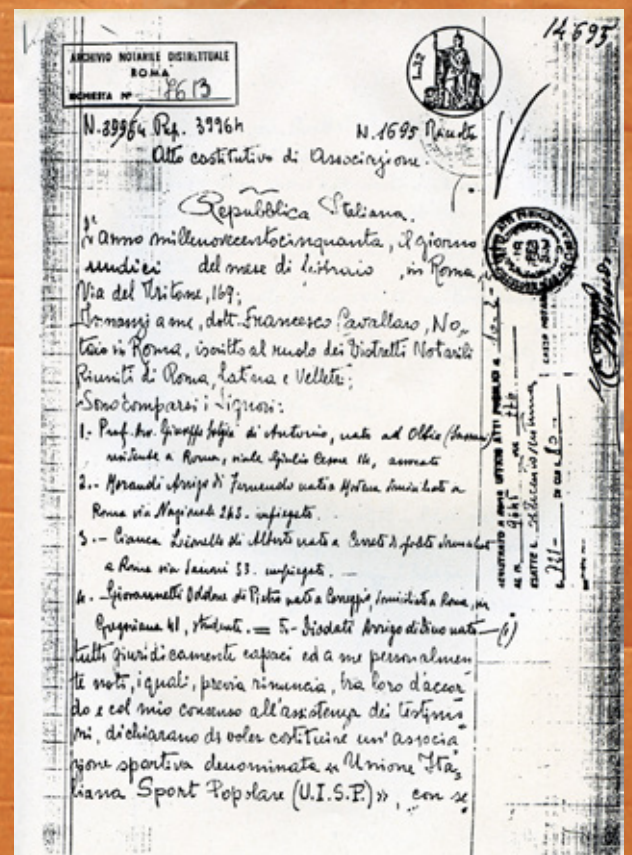 14695
ARCHIVIO NOTARILE DISTRETTUALE
ROMA
RICHIESTA N°
L.32
N. 39964 Rep. 39964
N. 1695 Raccolta
Atto costitutivo di Associazione.
Repubblica Italiana.
L'anno millenovecentocinquanta, il giorno
undici del mese di febbraio, in Roma,
Via del Tritone, 169;
Innanzi a me, dott. Francesco Cavallaro, No-
taio in Roma, iscritto al ruolo dei Distretti Notarili
Riuniti di Roma, Latina e Velletri;
Sono comparsi i Signori:
1.- Prof. Avv. Giuseppe di Antonio, nato ad Olbia (Sassari)
residente a Roma, viale Giulio Cesare 14, avvocato
2.- Morandi Arrigo di Fernando nato a Modena domiciliato a
Roma via Nazionale 243. impiegato.
3.- Cianca Lionello di Alberto nato a Cerreto di Spoleto domiciliato
a Roma via 53. impiegato.
4.- Giovannetti Oddone di Pietro nato a Correggio, domiciliato a Roma, via
Gregoriana 41, studente. = 5.- Diodati Arrigo di Dino nato (1)
tutti giuridicamente capaci ed a me personalmen
te noti, i quali, previa rinuncia, tra loro d'accor
do e col mio consenso all'assistenza dei testimo
ni, dichiarano di voler costituire un'associa
zione sportiva denominata « Unione Ita-
liana Sport Popolare (U.I.S.P.)», con se
REGISTRATO A ROMA UFFICIO ATTI PUBBLICI